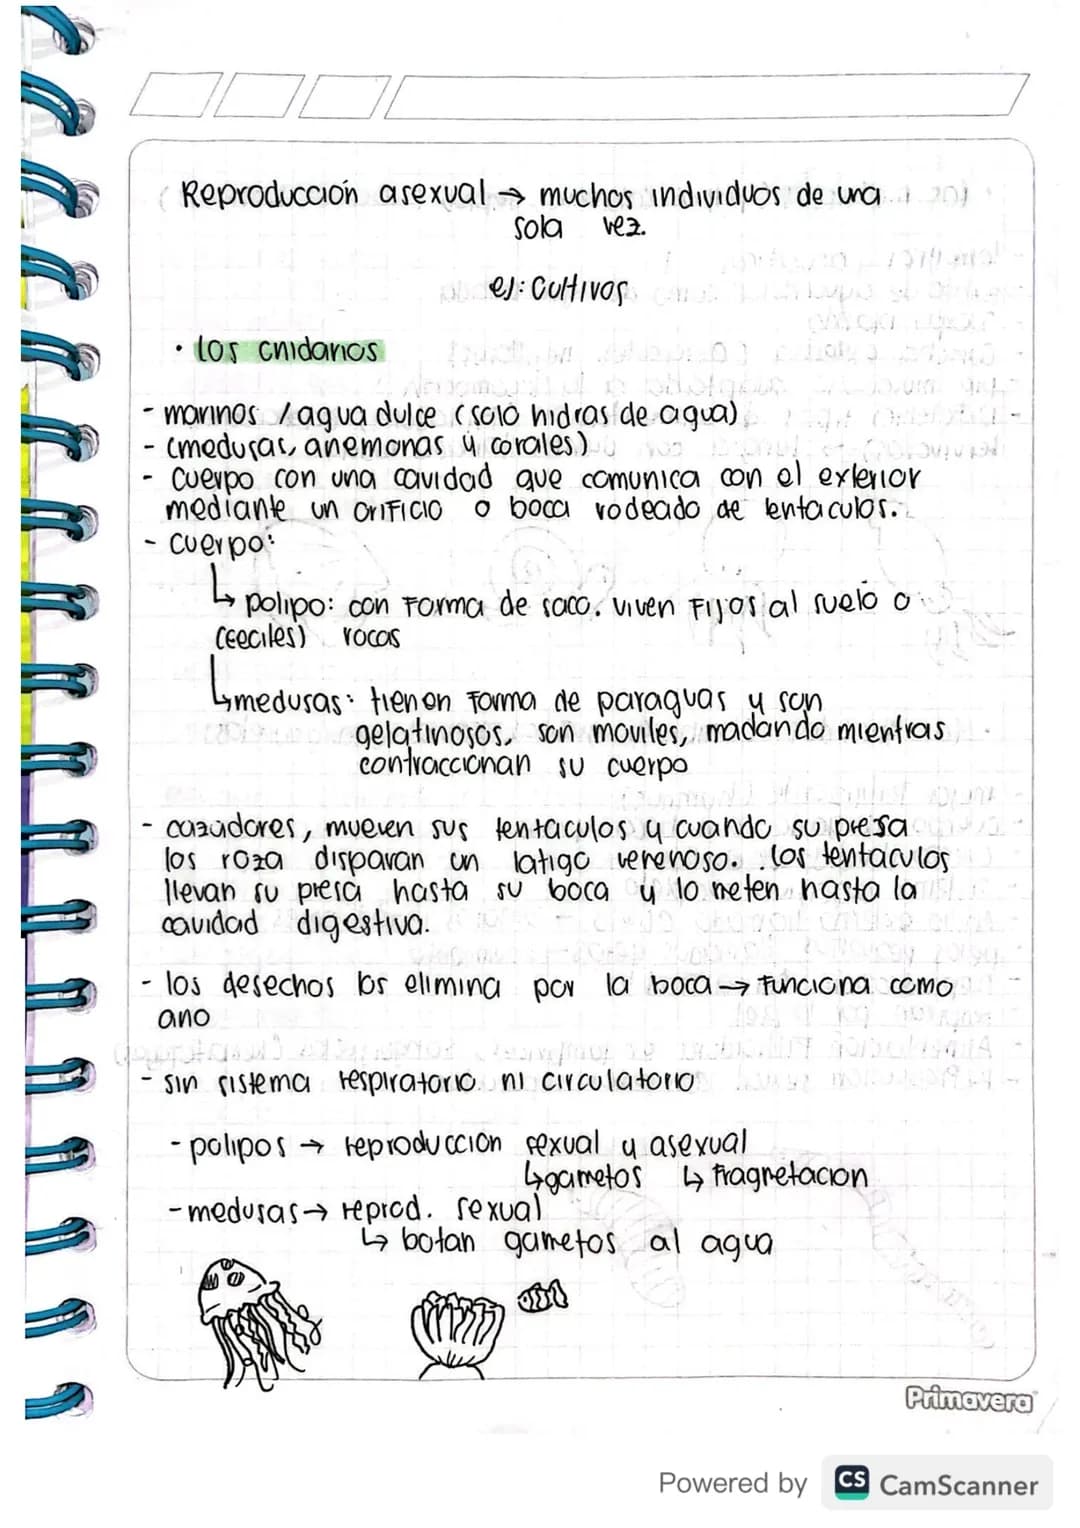 Reproducción asexual → muchos individuos de una
sola vez.
ej: cultivos
• los cnidarios
- marinos / agua dulce (solo hidras de agua)
- (medusas, anemonas y corales)
- cuerpo con una cavidad que comunica con el exterior
mediante un orificio o boca rodeado de tentaculos.
- cuerpo:
↳ polipo: con forma de saco. viven fijos al suelo o
(ceeciles) rocas
↳ medusas: tienen forma de paraguas y son
gelatinosos, son moviles, madando mientras
contraccionan su cuerpo
- cazadores, mueven sus tentaculos y cuando su presa
los roza disparan un latigo venenoso. los tentaculos
llevan su presa hasta su boca y lo meten hasta la
cavidad digestiva.
- los desechos los elimina por la boca → funciona como
ano
- sin sistema respiratorio ni circulatorio
- polipos → reproduccion sexual y asexual
↳ gametos ↳ fragnetacion
- medusas → reprod. sexual
↳ botan gametos al agua
Primavera
Powered by CS CamScanner